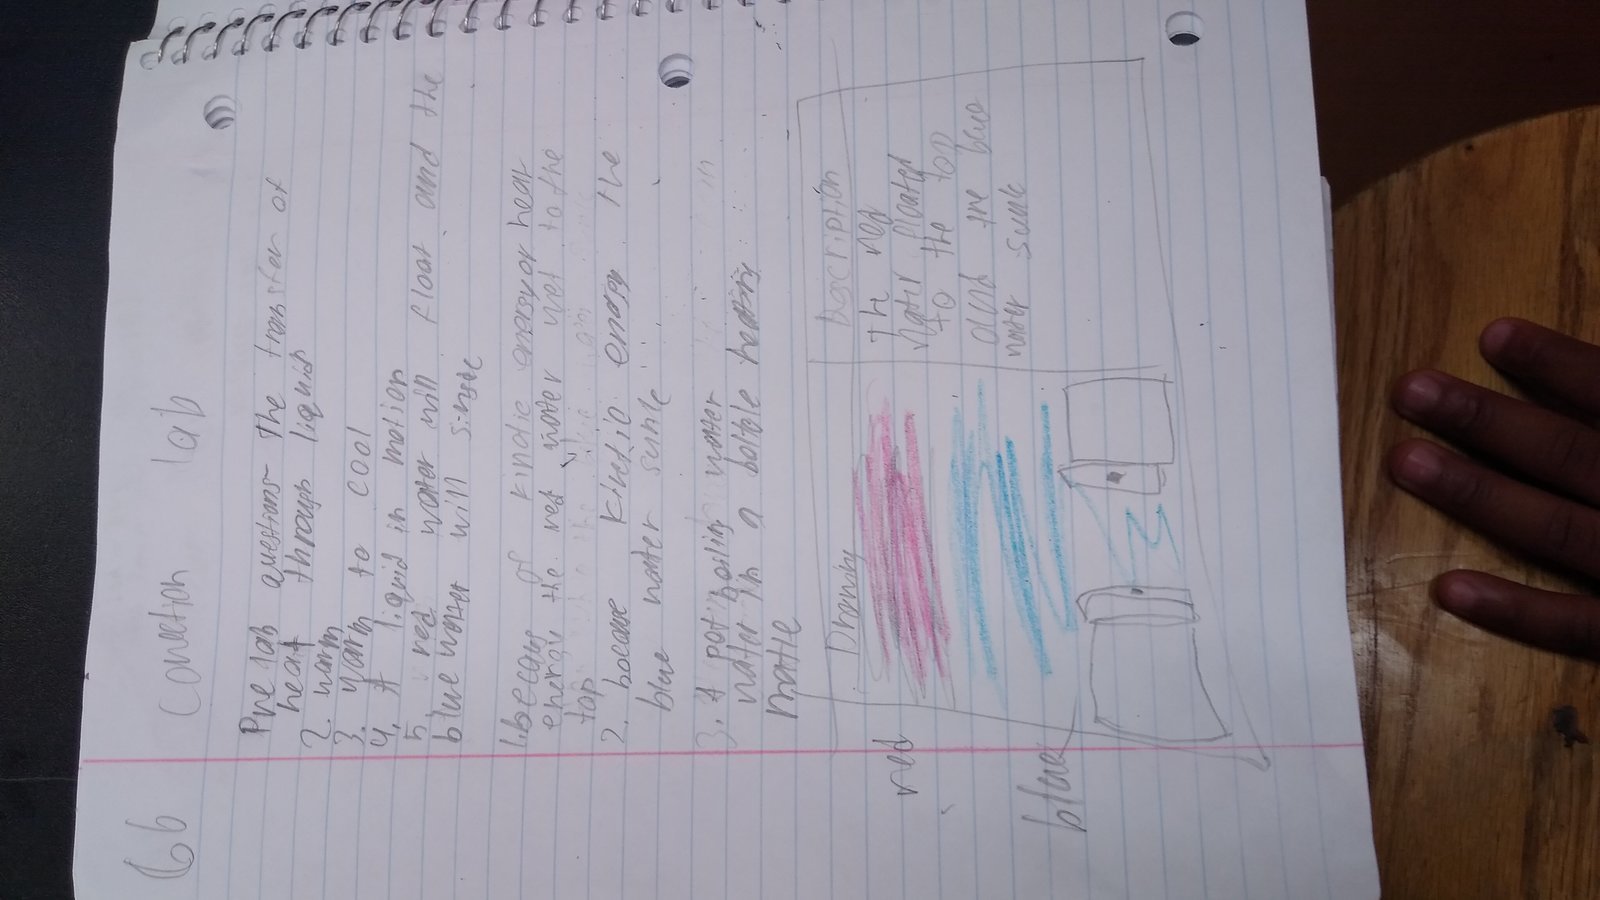 6b
convection lab
Pre lab questions- The transfer of
heat through liquid
2. warm
3. warm to cool
4. A liquid in motion
5 red water will float and the
blue water will sinke
1. becaus of kinetic energy or heat
energy the red water wet to the
top
2. becaue kinetic energy the
blue water sunke
3. A pot boiling water
water in a bottle heating
Drawing
Description
Th red
water floated
to the top
and the blue
water sunk
red
blue